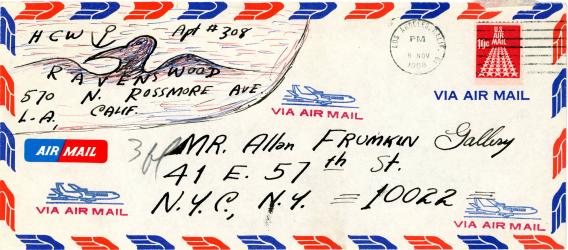 HCW Apt #308
RAVENSWOOD
570 N. ROSSMORE AVE.
L.A. CALIF.
LOS ANGELES, CALIF.
PM
8 NOV
1968
U.S.
AIR MAIL
10c
VIA AIR MAIL
VIA AIR MAIL
AIR MAIL
MR. Allan FRUMKIN Gallery
41 E. 57th St.
N.Y.C., N.Y. = 10022 =
VIA AIR MAIL
VIA AIR MAIL